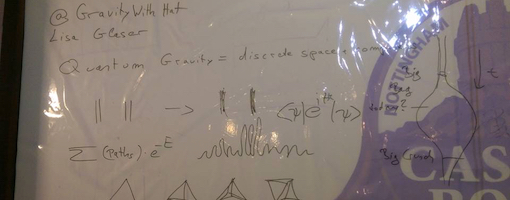 @ GravityWith Hat
Lisa Glaser
Quantum Gravity = discrete space +
|| || → || || ⟨ψ|e^{iHt}|ψ⟩
Σ (Paths) · e^{-E}
Big
Bang
t
today?
Big Crunch
NOTTINGHAM
CAS
RO